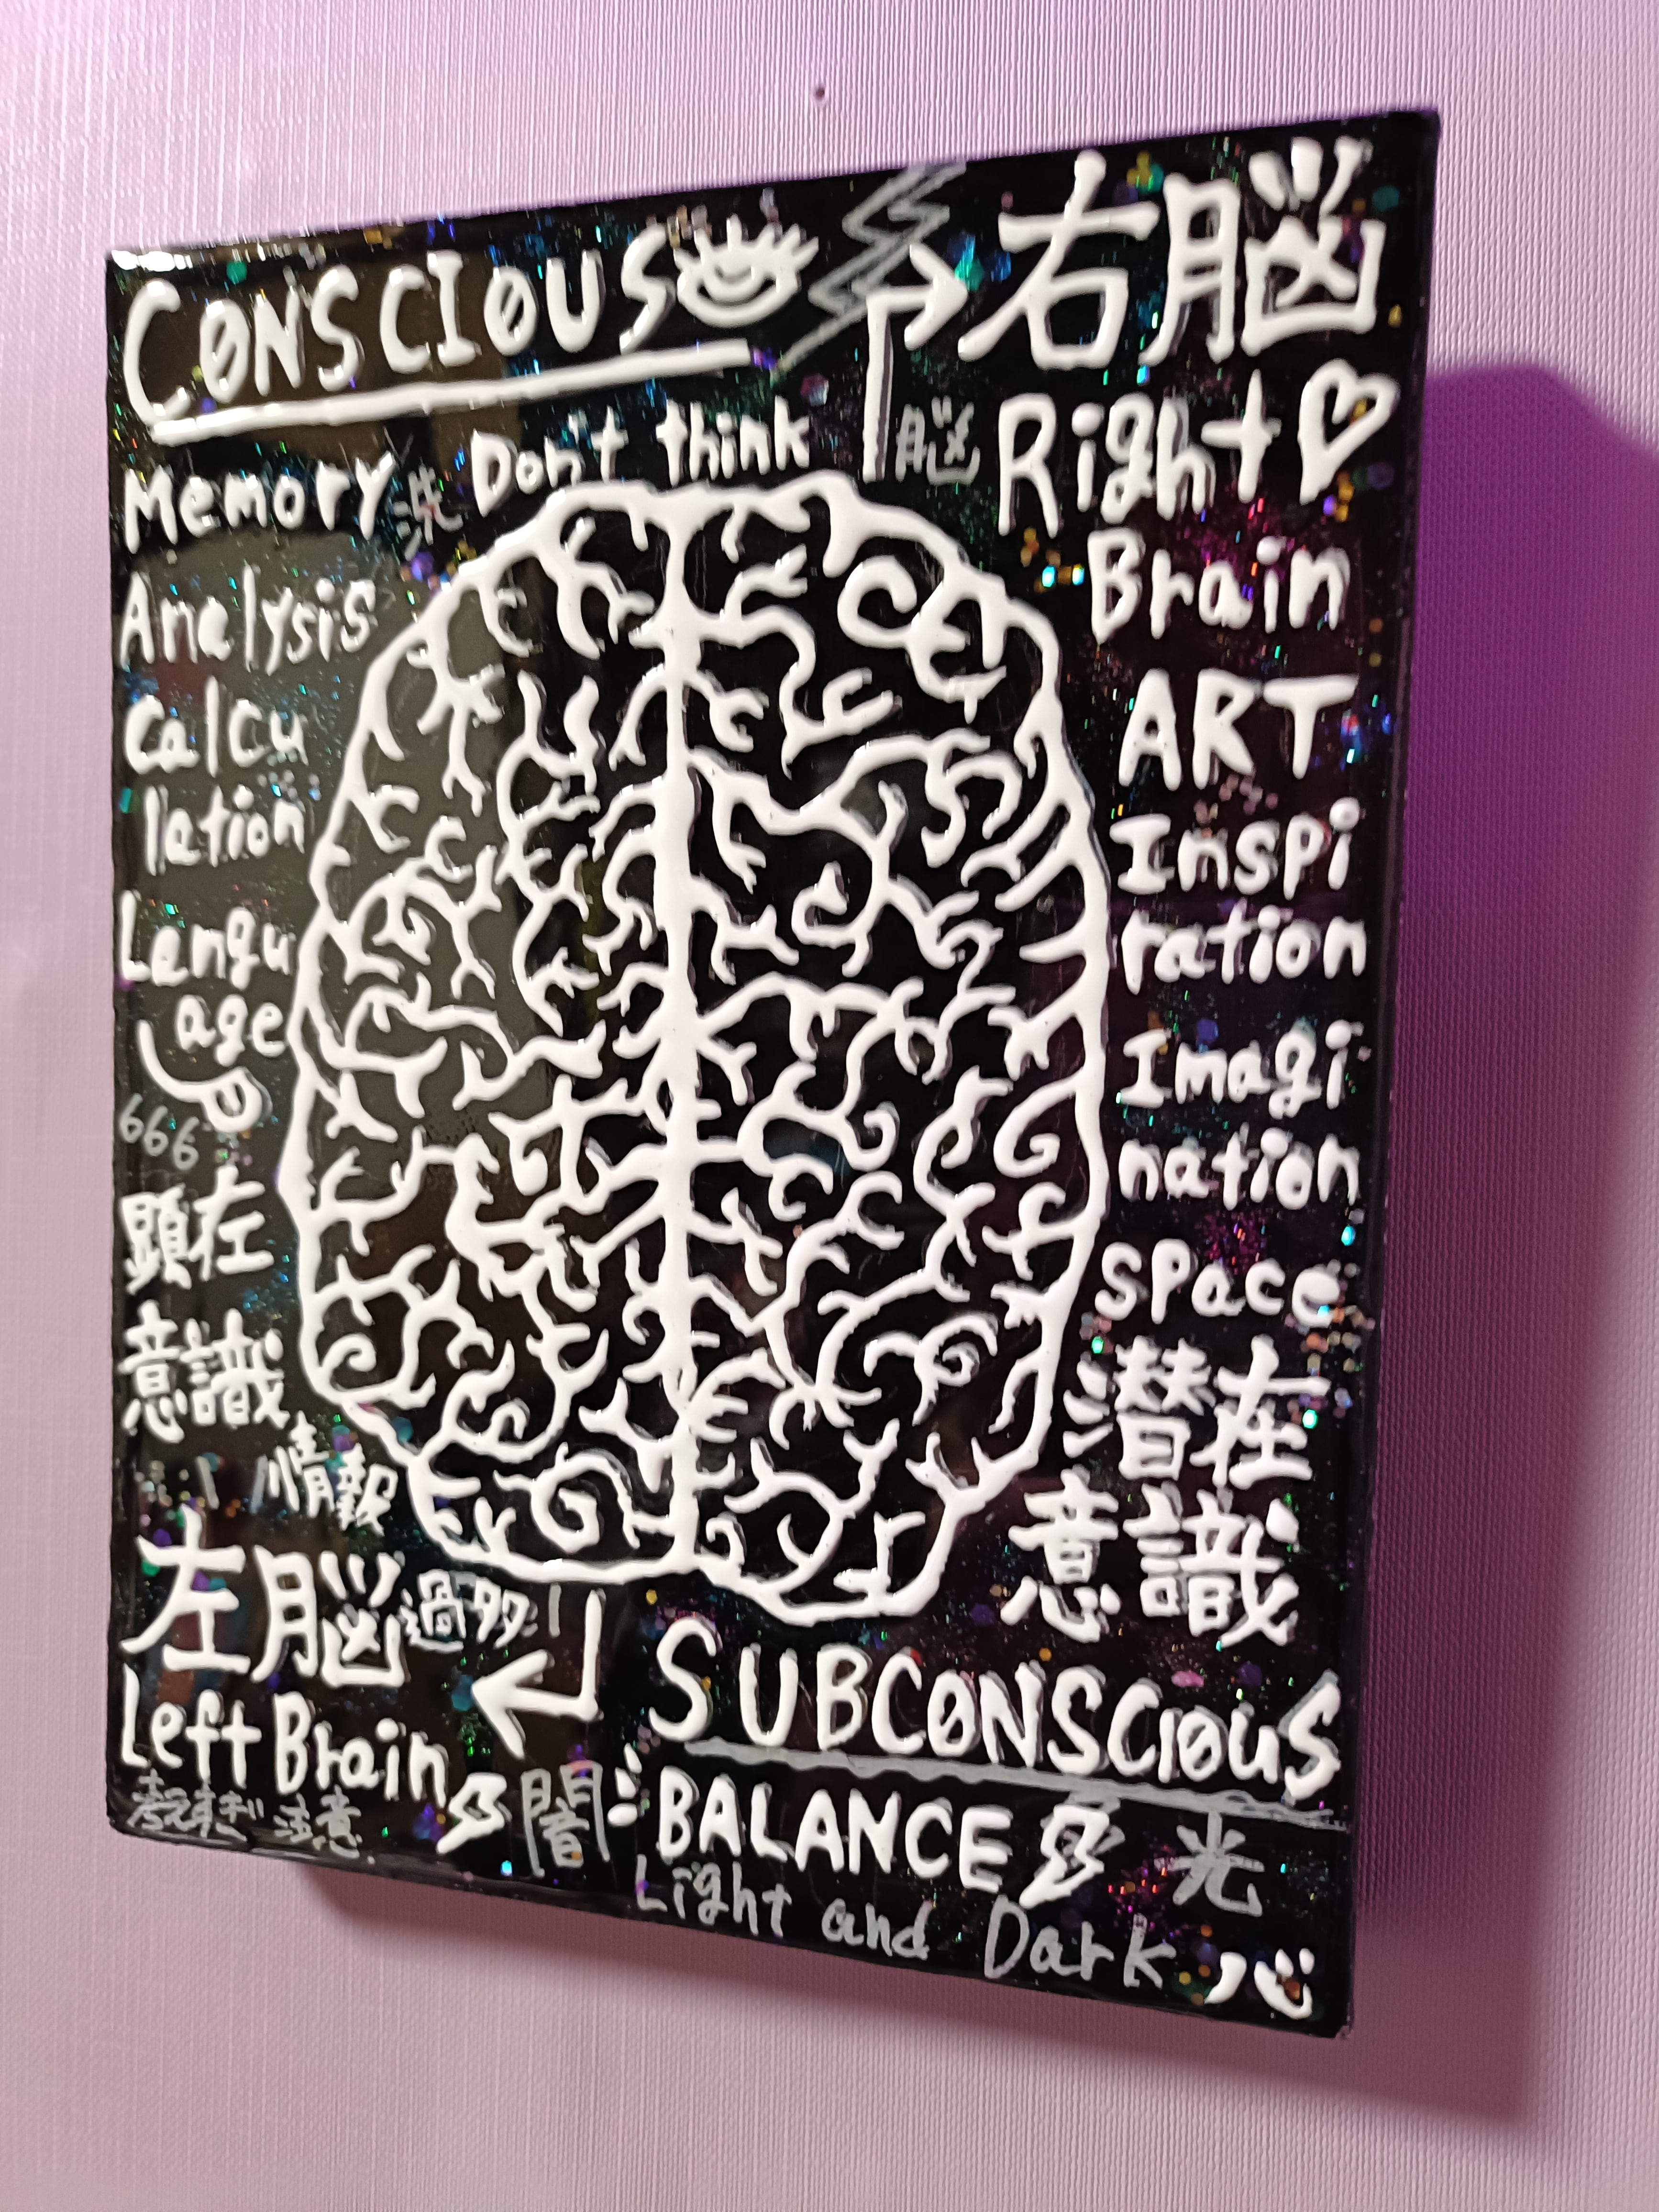 CONSCIOUS
右脳
Don't think
脳
Right
Memory
洗
Brain
Analysis
Calcu
lation
ART
Langu
age
Inspi
ration
666
Imagi
nation
顕在
意識
space
潜在
意識
情報
左脳
過多
Left Brain
SUBCONSCIOUS
考えすぎ注意
闇
BALANCE
光
Light and Dark
心